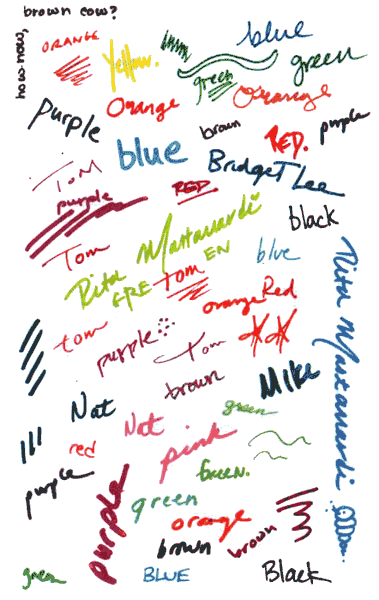 brown cow?
how now,
ORANGE
Yellow.
blue
green
green
purple
Orange
Orange
brown
RED.
purple
blue
BridgeT Lee
Tom
purple
RED
black
Tom
Rita Mastanardi
EN
blue
GRE
Tom
orange
Red
Rita Mastanardi
tom
purple
Tom
brown
Mike
Nat
Nat
green
red
pink
purple
Green.
purple
green
orange
brown
brown
green
BLUE
Black